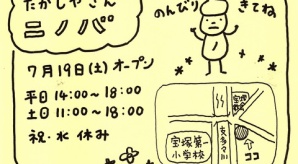 だがしやさん
ニノパ
のんびり
きてね
7月19日(土)オープン
平日 14:00〜18:00
土日 11:00〜18:00
祝・水 休み
宝塚第一
小学校
ココ